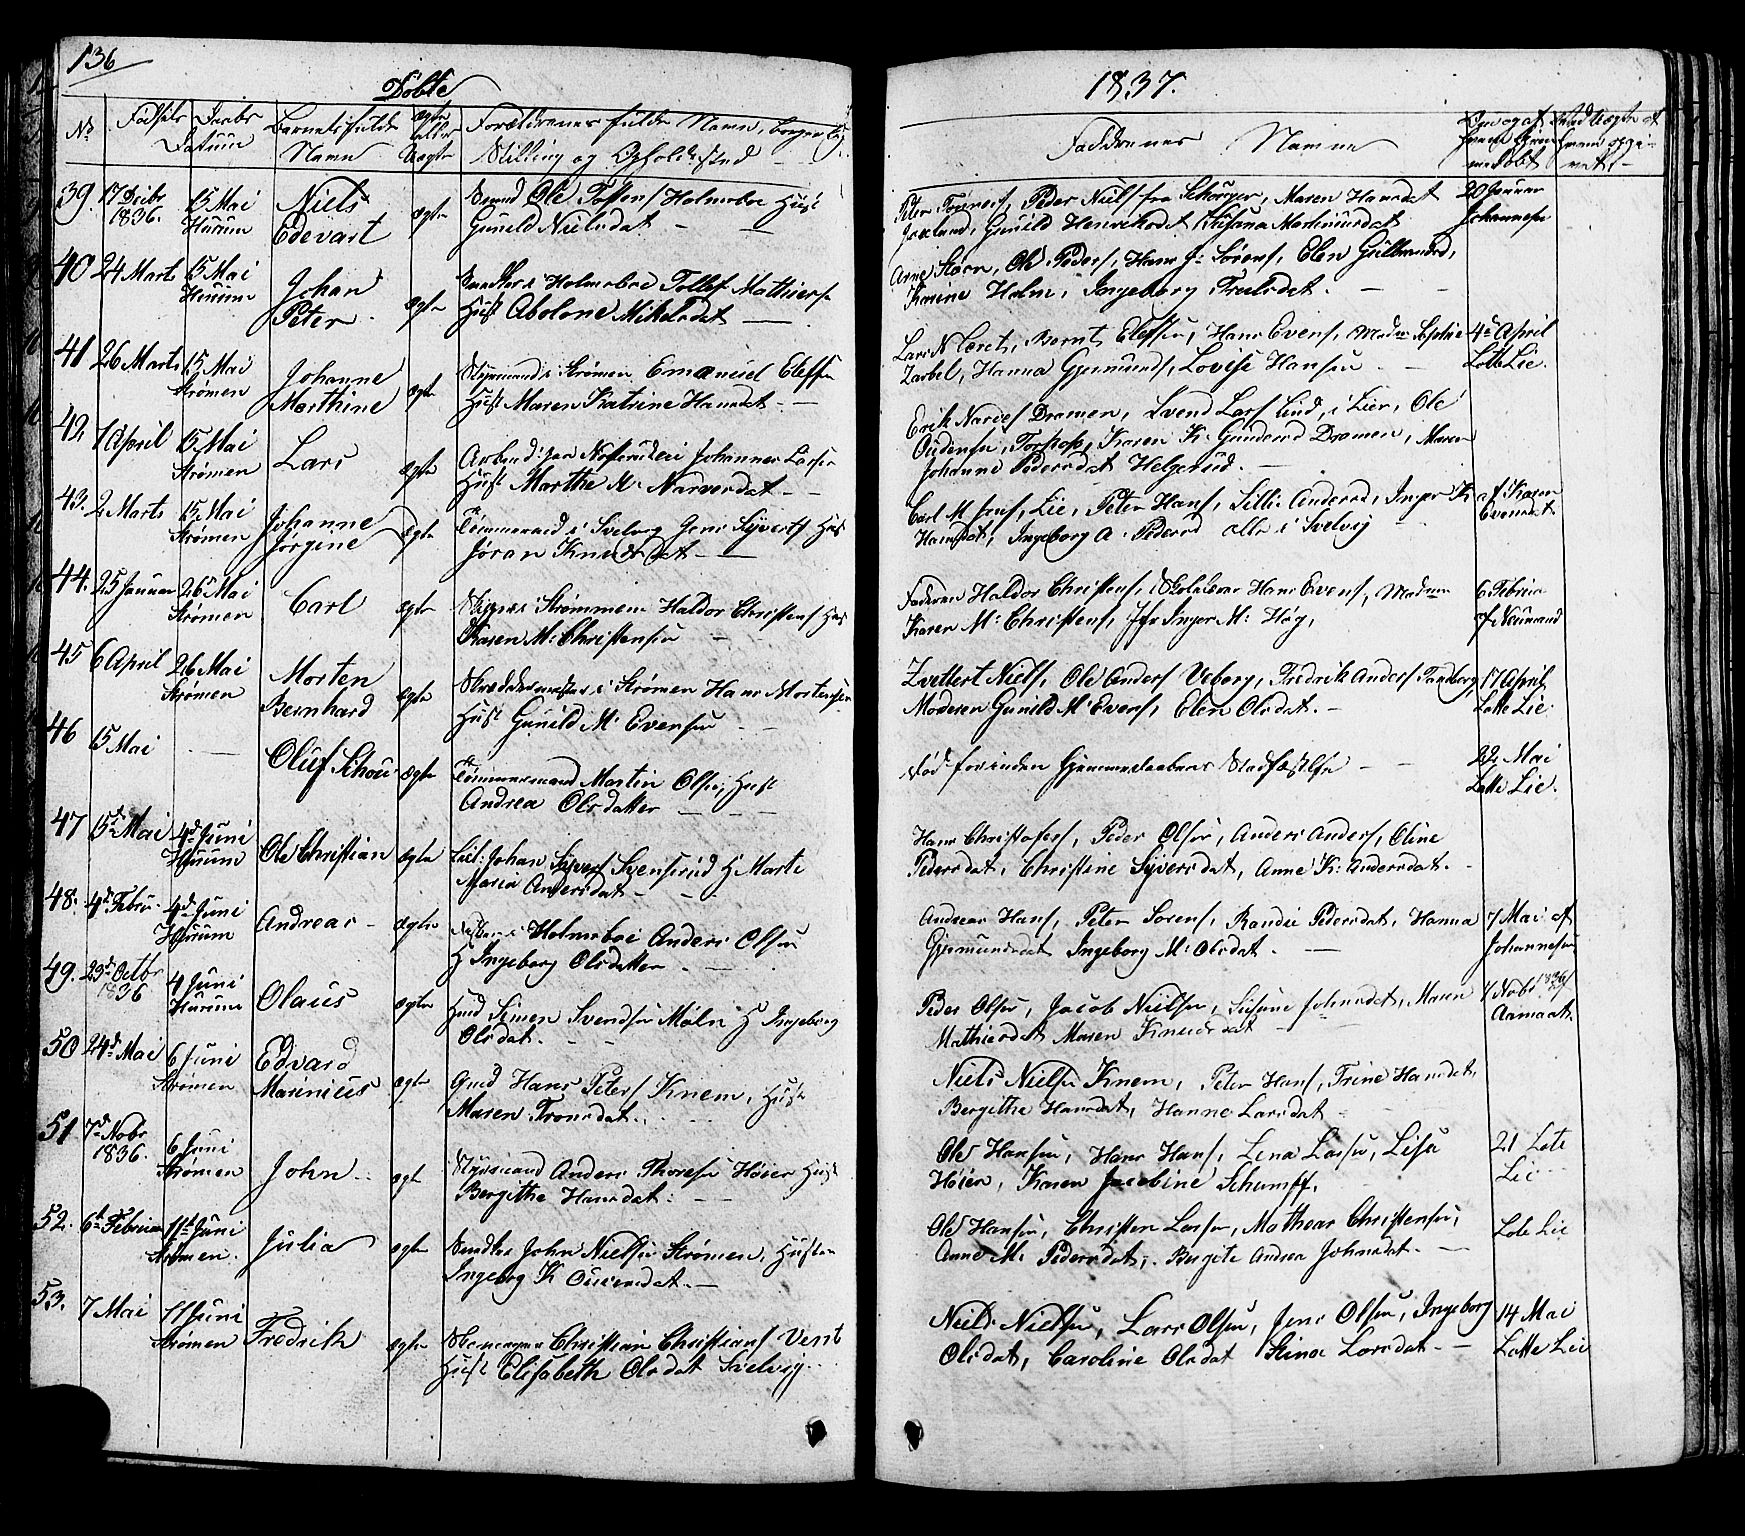 136
Döbte
1837.
No
Fødsels Daabs
Datum
Barnets fulde
Navn
ægte
eller
uægte
Forældrenes fulde Navn, borgerlig
Stilling og Opholdssted
Faddrenes Navne
39. 17 Decbr 1836. 15 Mai Hurum Niels Edevart ægte
Ole Toffens Holmsboe Hust
Gunild Nielsdat
Peder Niels fra Maren Hansdat
Gunild Henriksdat Susana Martinusdat
20 Januar
Johannesen
40 24 Marts 15 Mai Hurum Johan Peter ægte
Holmsboe Tollef Mathiesen
Hust Abolone Mikelsdat
Arne Steen, Ole Peders, Hans J. Sörens, Elen Gulbrandsd,
Karine Holm, Ingeborg Trulsdat.
41 26 Marts 15 Mai Strømen Johanne Marthine ægte
Styrmand i Strømen Emanuel Elefsen
Hust Maren Katrine Hansdat.
Lars N. Bernt Elefsen, Hans Evens, Madm Sophie
Zarbel, Hanna Gjermunds, Lovise Hansen
4de April
Lotte Lie.
42. 1 April 15 Mai Strømen Lars ægte
Johannes Larsen
Hust Marthe M. Narvesdat
Erik Narves Dramen, Svend Lars Lind, i Lier, Ole
Oudensen, Karen K. Gundersd Dramen, Maren
Johanne Pedersdat Helgerud.
43. 2 Marts 15 Mai Strømen Johanne Jörgine ægte
Tömmermd i Svelvig Jens Syverts Hus
Jöran Knudsdat
Carl M. Lie, Peter Hans, Lillie Andersd, Inger K
Hansdat, Ingeborg A. Pedersd alle i Svelvig
af Karen
Evensdat
44. 25 Januar 26 Mai Strømen Carl ægte
Skipper i Strømmen Haldor Christens Hus
Karen M. Christensen
Faderen Haldor Christens, Skolelærer Hans Evens, Madam
Karen M. Christens, Jfr Inger M. Høg,
6 Februar
af Neumand
45 6 April 26 Mai Strømen Morten Bernhard ægte
Skreddermester i Strømen Hans Mortensen
Hust Gunild M. Evensen
Niels, Ole Anders Veborg, Fredrik Anders
Moderen Gunild M. Evens, Elen Olsdat.
17 April
Lotte Lie.
46 15 Mai Oluf Schou ægte
Tömmermand Martin Olsen, Hust
Andrea Olsdatter
Död forinden Hjemmedaabens Stadfæstelse
22 Mai
Lotte Lie.
47 15de Mai 4de Juni Hurum Ole Christian ægte
Johan Svensrud H. Marte
Maria Andersdat
Hans Christofers, Peder Olsen, Anders Anders, Eline
Pedersdat, Christine Syversdat, Anne K. Andersdat.
48. 4de Febru. 4de Juni Hurum Andreas ægte
Holmsboe Anders Olsen
H Ingeborg Olsdatter
Andreas Hans, Peter Sorens, Randie Pedersdat, Hanna
Gjermundsdat Ingeborg M. Olsdat.
7 Mai af
Johannesen
49. 23de Octbr 1836 4 Juni Hurum Olaus ægte
Husd Simen Svendsen Møln H Ingeborg
Olsdat.
Peder Olsen, Jacob Nielsen, Johnsdat, Maren
Mathisdat Maren Knudsdat
1 Nobr 1836
50 24de Mai 6 Juni Strømen Edvard Marinius ægte
Gmd Hans Peters Knem, Hust
Maren Tronsdat.
Niels Nielsen Knem, Peter Hans, Trine Hansdat,
Bergithe Hansdat, Hanne Larsdat
51 7de Nobr 1836. 6 Juni Strømen John ægte
Styrmand Anders Thoresen Høier Hust
Bergithe Hansdat.
Ole Hansen, Hans Hans, Lena Larsen, Lisa
Höien, Karen Jacobine Schumff.
21 Lote
Lie
52. 6te Februar 11te Juni Strømen. Julia ægte
John Nielsen Strømen, Hustru
Ingeborg K. Ouensdat.
Ole Hansen, Christen Larsen, Mathear Christensen,
Anne M. Pedersdat, Bergite Andrea Johnsdat.
Lote Lie
53. 7 Mai 11 Juni Strømen Fredrik ægte
Christian Christians Vent
Hust Elisabeth Olsdat Svelvig.
Niels Nielsen, Lars Olsen, Jens Olsen, Ingeborg
Olsdat, Caroline Olsdat Stina Larsdat.
14 Mai
Lotte Lie